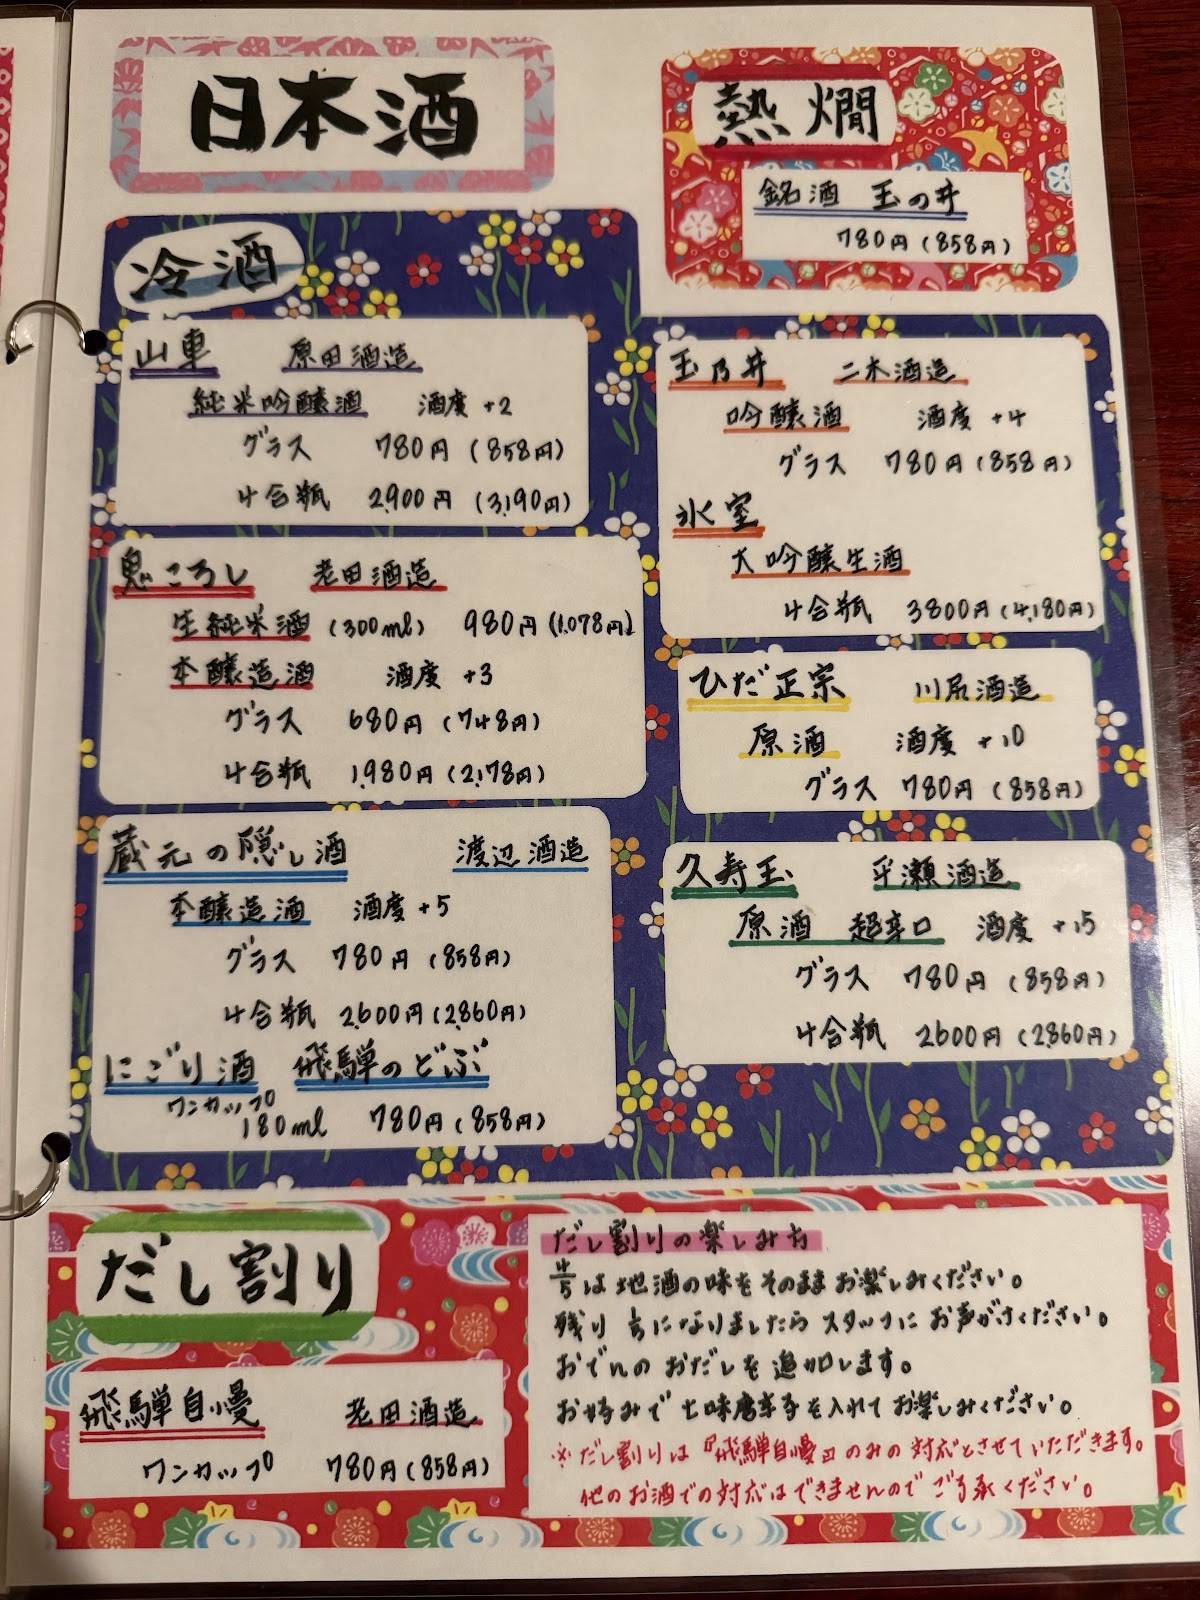 日本酒
熱燗
銘酒 玉の井
780円(858円)
冷酒
山車 原田酒造
純米吟醸酒 酒度 +2
グラス 780円(858円)
4合瓶 2,900円(3,190円)
鬼ころし 老田酒造
生純米酒(300ml) 980円(1,078円)
本醸造酒 酒度 +3
グラス 680円(748円)
4合瓶 1,980円(2,178円)
蔵元の隠し酒 渡辺酒造
本醸造酒 酒度 +5
グラス 780円(858円)
4合瓶 2,600円(2,860円)
にごり酒 飛騨のどぶ
ワンカップ
180ml 780円(858円)
玉乃井 二木酒造
吟醸酒 酒度 +4
グラス 780円(858円)
氷室
大吟醸生酒
4合瓶 3800円(4,180円)
ひだ正宗 川尻酒造
原酒 酒度 +10
グラス 780円(858円)
久寿玉 平瀬酒造
原酒 超辛口 酒度 +15
グラス 780円(858円)
4合瓶 2600円(2,860円)
だし割り
飛騨自慢 老田酒造
ワンカップ 780円(858円)
だし割りの楽しみ方
4/5は地酒の味をそのままお楽しみください。
残り 1/5になりましたら スタッフに お声がけください。
おでんの おだしを 追加します。
お好みで 七味唐辛子を入れて お楽しみください。
※だし割りは『飛騨自慢』のみの対応とさせていただきます。
他のお酒での対応はできませんので ご了承ください。